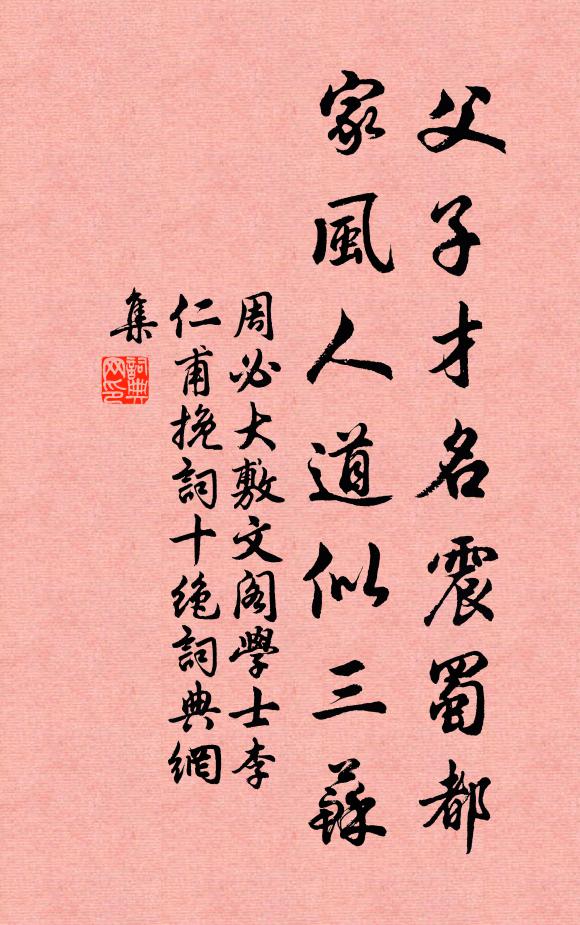 父子才名震蜀都
家風人道似三蘇
周必大敷文閣學士李
仁甫挽詞十絕詞典網
集
詞典網印